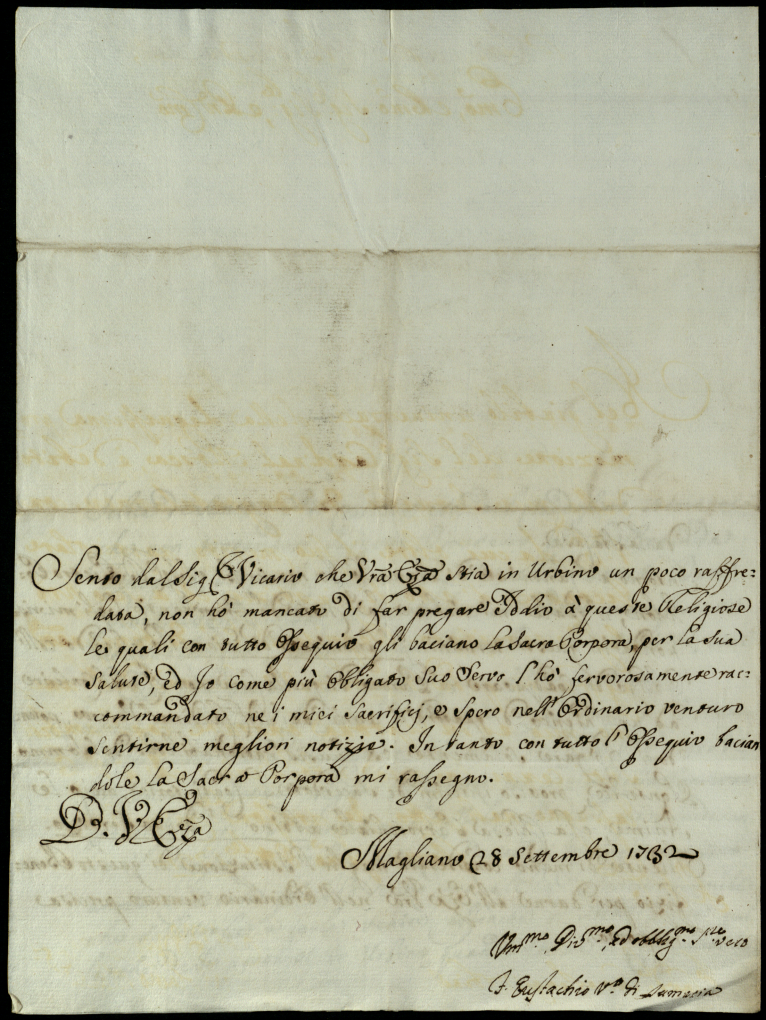 Sento dal Sig.r Vicario che Vra Eza stia in Urbino un poco raffre=
data, non hò mancato di far pregare Iddio à queste Religiose
le quali con tutto Ossequio gli baciano la Sacra Porpora, per la sua
salute, ed Jo come più Obligato Suo Servo l'hò fervorosamente rac=
commandato ne i miei Sacrificj, e spero nell'Ordinario venturo
sentirne megliori notizie. In tanto con tutto l'Ossequio bacian
dole la Sacra Porpora mi rassegno.
D. V. Eza
Magliano 28 Settembre 1732
Um.mo Div.mo, ed obblig.mo Ser.re vero
F. Eustachio V.o di